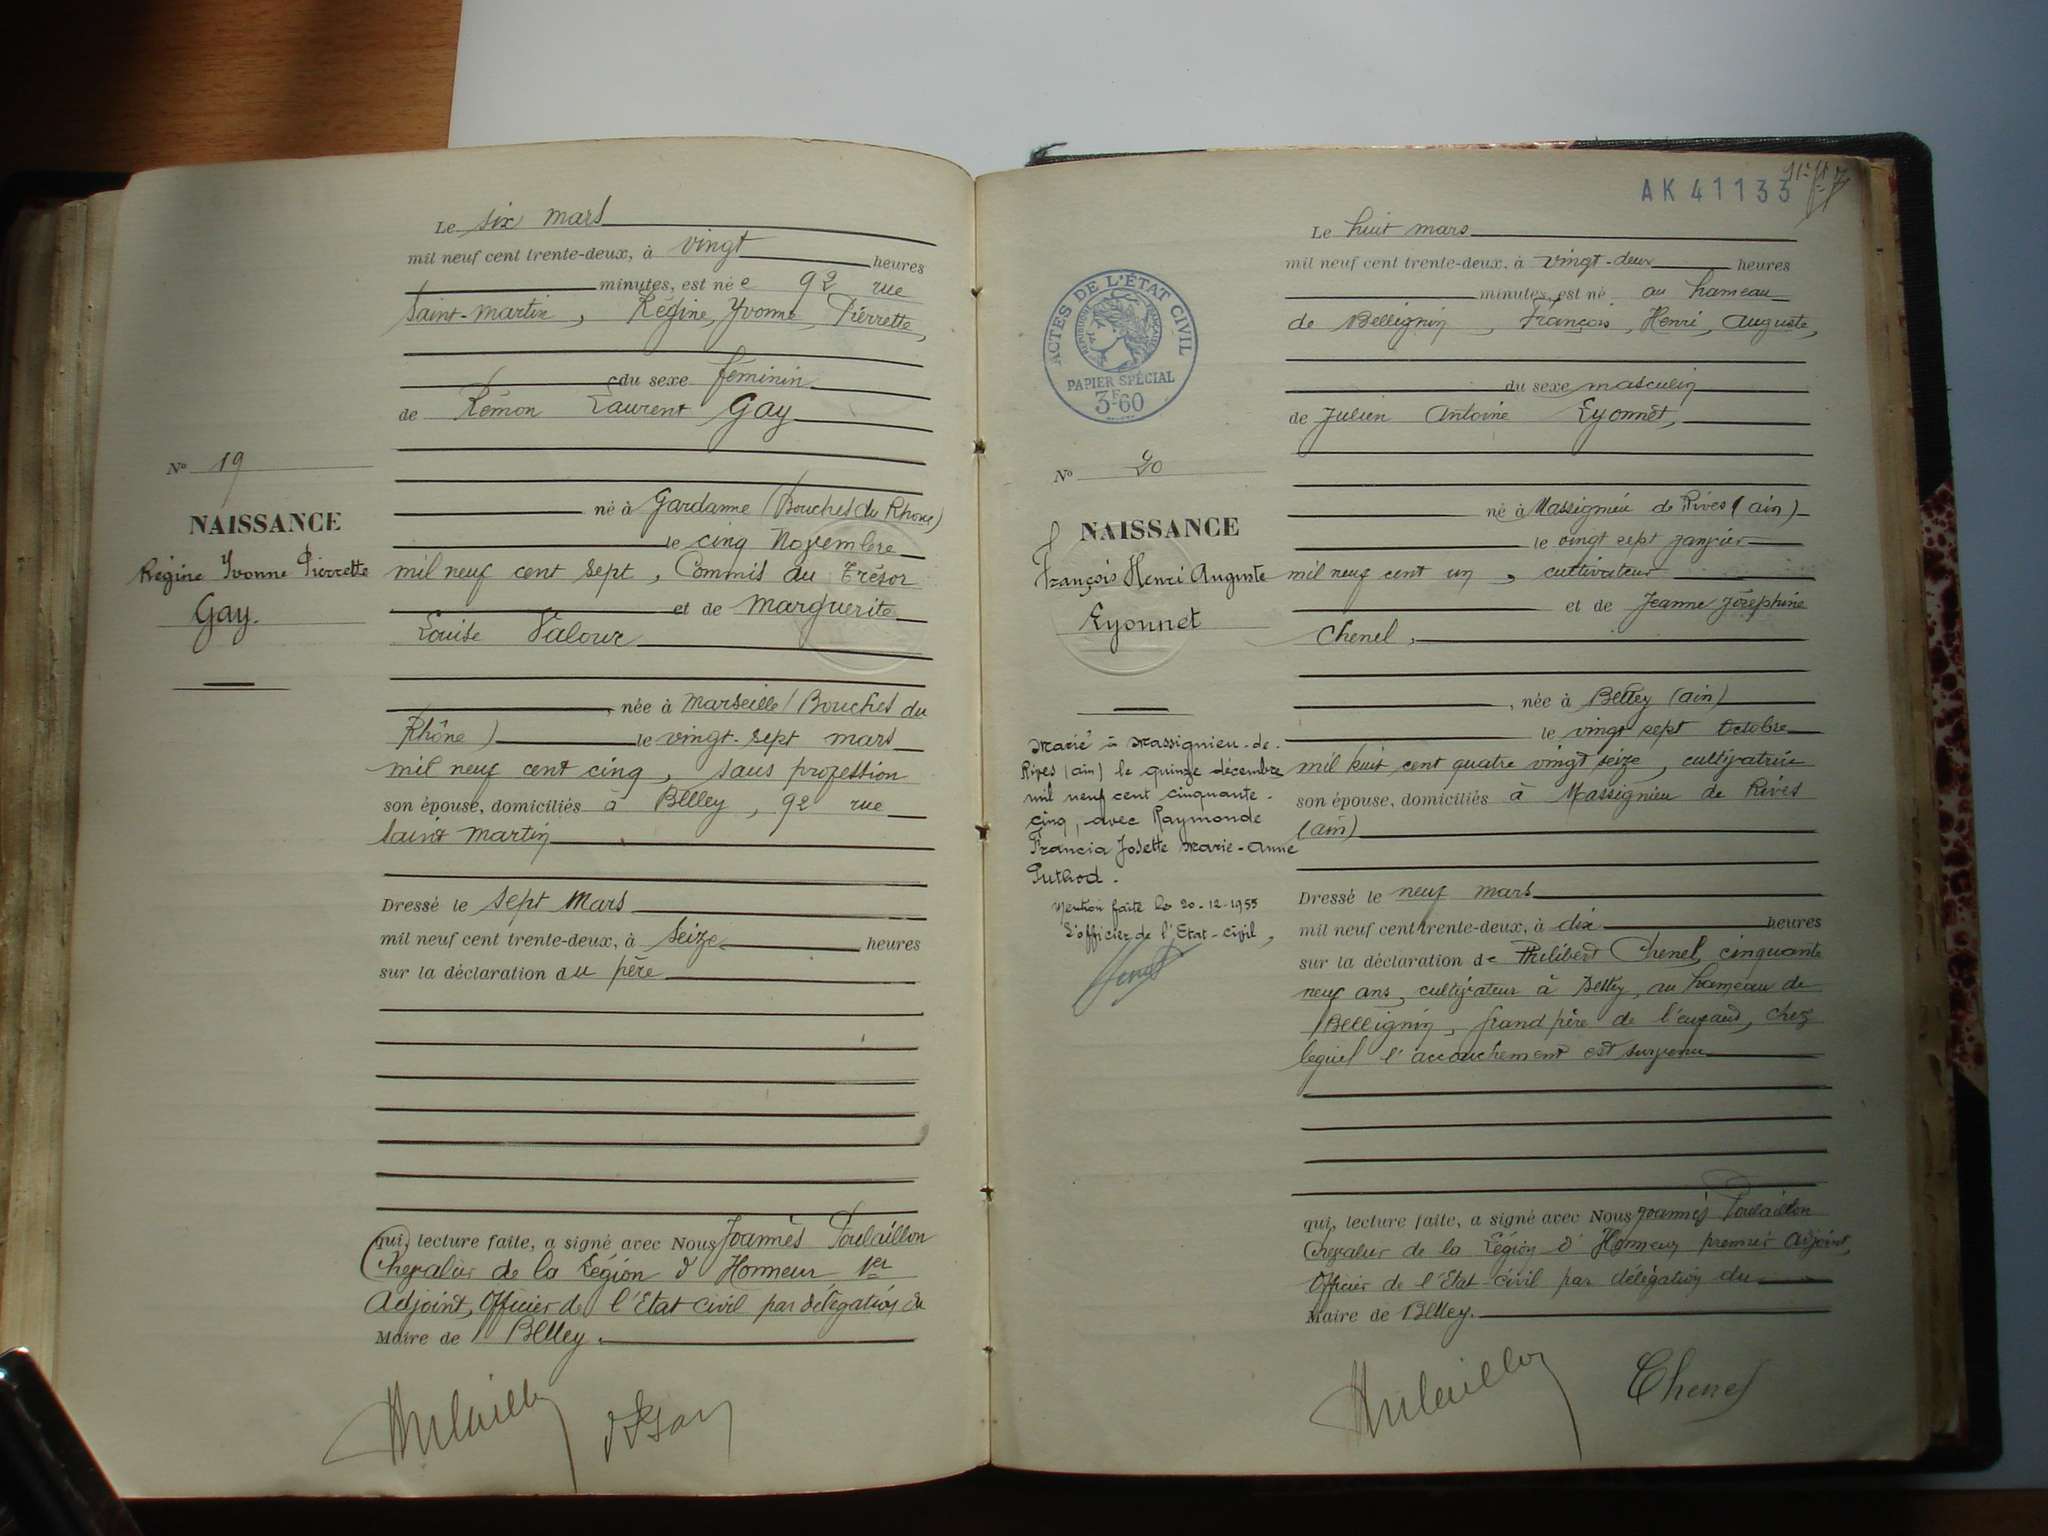 Le six mars
mil neuf cent trente-deux, à vingt heures
minutes, est née 92 rue
Saint-Martin, Régine, Yvonne, Pierrette,
du sexe féminin
de Rémon Laurent Gay
N° 19
né à Gardanne (Bouches du Rhône)
NAISSANCE
le cinq Novembre
Régine Yvonne Pierrette
mil neuf cent sept, Commis du Trésor
et de Marguerite
Gay.
Louise Valour
née à Marseille (Bouches du
Rhône) le vingt-sept mars
mil neuf cent cinq, sans profession
son épouse, domiciliés à Belley, 92 rue
Saint Martin
Dressé le sept Mars
mil neuf cent trente-deux, à seize heures
sur la déclaration du père
qui, lecture faite, a signé avec Nous Joannès Poulaillon
Chevalier de la Légion d'Honneur 1er
Adjoint, Officier de l'Etat civil par délégation du
Maire de Belley.
AK41133
Le huit mars
mil neuf cent trente-deux, à vingt-deux heures
minutes, est né au hameau
de Bellignin, François, Henri, Auguste,
ACTES DE L'ÉTAT CIVIL
RÉPUBLIQUE FRANÇAISE
PAPIER SPÉCIAL
3F60
du sexe masculin
de Julien Antoine Eyonnet,
N° 20
né à Massignieu de Rives (ain)
NAISSANCE
le vingt sept janvier
François Henri Auguste
mil neuf cent un, cultivateur
et de Jeanne Joséphine
Eyonnet
Chenel,
, née à Belley (ain)
le vingt sept Octobre
mil huit cent quatre vingt seize, cultivatrice
son épouse, domiciliés à Massignieu de Rives
(ain)
Marié à Massignieu-de-
Rives (ain) le quinze décembre
mil neuf cent cinquante-
cinq, avec Raymonde
Francia Josette Marie-Anne
Puthod.
Mention faite le 20-12-1955
L'officier de l'Etat-civil,
Dressé le neuf mars
mil neuf cent trente-deux, à dix heures
sur la déclaration de Philibert Chenel, cinquante
neuf ans, cultivateur à Belley, au hameau de
Bellignin, grand père de l'enfant, chez
lequel l'accouchement est survenu
qui, lecture faite, a signé avec Nous Joannès Poulaillon
Chevalier de la Légion d'Honneur premier adjoint,
Officier de l'Etat-civil par délégation du
Maire de Belley.
Chenel